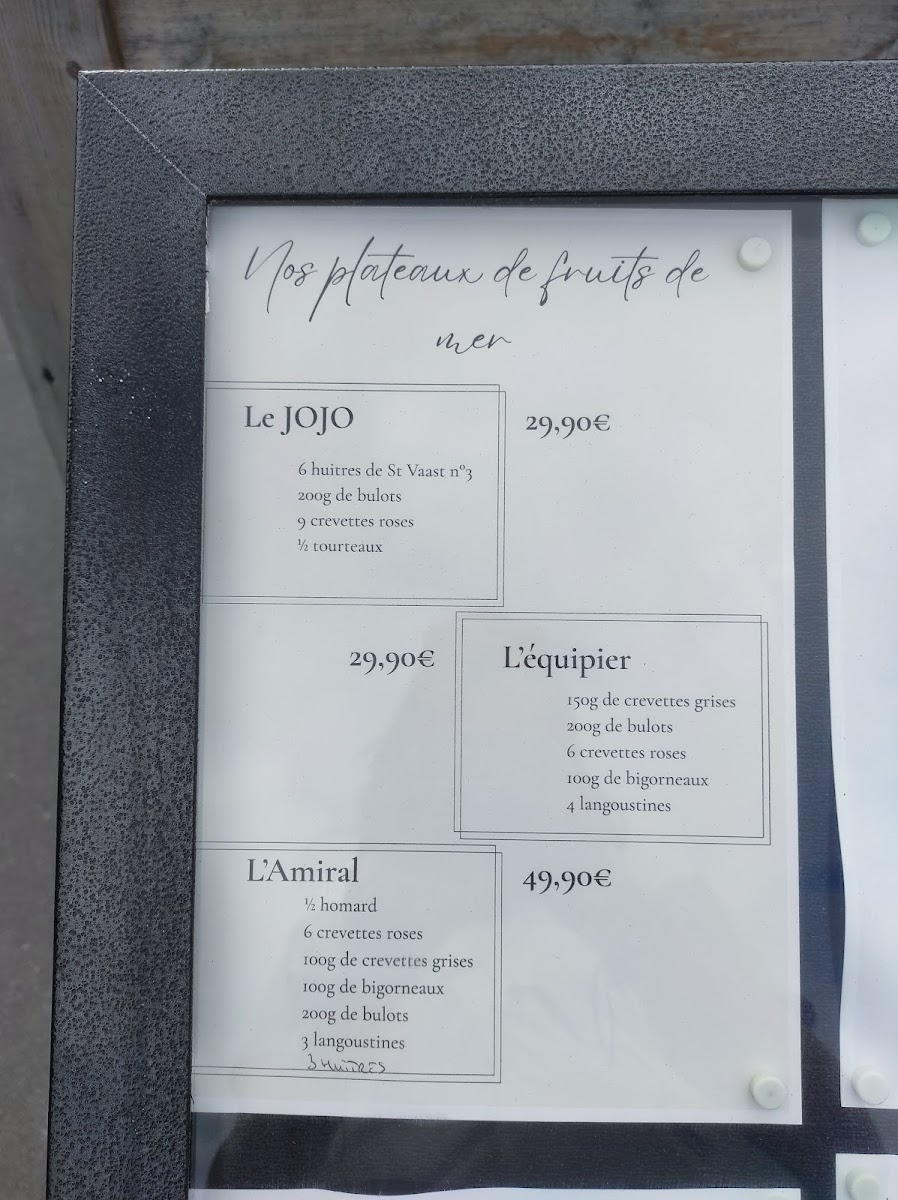 Nos plateaux de fruits de
mer
Le JOJO
29,90€
6 huitres de St Vaast n°3
200g de bulots
9 crevettes roses
½ tourteaux
29,90€
L'équipier
150g de crevettes grises
200g de bulots
6 crevettes roses
100g de bigorneaux
4 langoustines
L'Amiral
49,90€
½ homard
6 crevettes roses
100g de crevettes grises
100g de bigorneaux
200g de bulots
3 langoustines
3 HUÎTRES